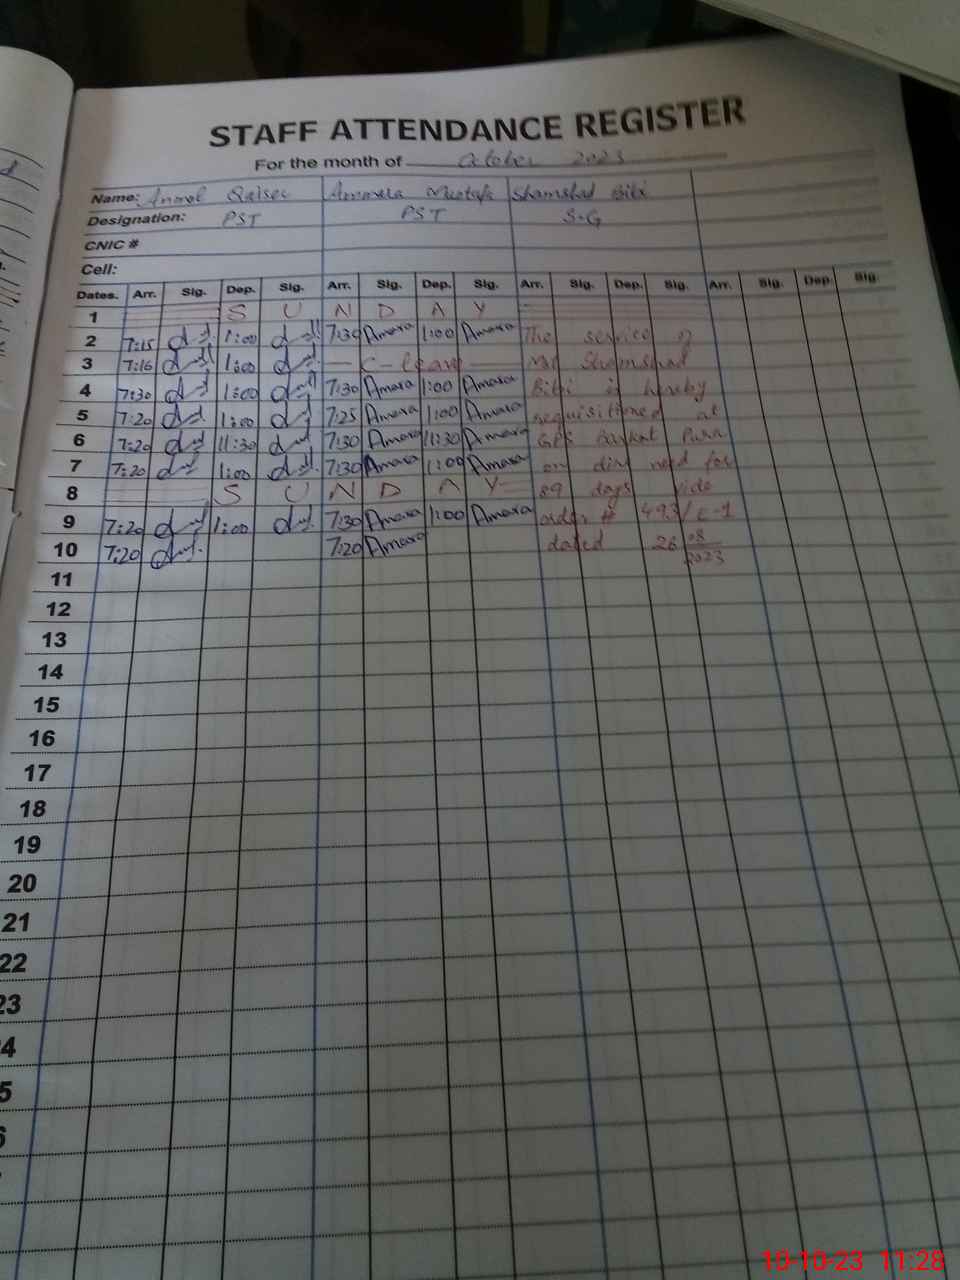 STAFF ATTENDANCE REGISTER
For the month of October 2023
Name: Anmol Qaiser Ammara Mustafa Shamshad Bibi
Designation: PST PST S-G
CNIC #
Cell:
Dates. Arr. Sig. Dep. Sig. Arr. Sig. Dep. Sig. Arr. Sig. Dep. Sig. Arr. Sig. Dep. Sig.
1 S U N D A Y
2 7:15 1:00 7:30 Amara 1:00 Amara The service of
3 7:16 1:00 C-leave Shamshad
4 7:30 1:00 7:30 Amara 1:00 Amara Bibi is hereby
5 7:20 1:00 7:25 Amara 1:00 Amara requisitioned at
6 7:20 11:30 7:30 Amara 11:30 Amara GPS Pura
7 7:20 1:00 7:30 Amara 1:00 Amara on need for
8 S U N D A Y 89 days vide
9 7:20 1:00 7:30 Amara 1:00 Amara order # 493/E-1
10 7:20 7:20 Amara dated 26 08 2023
11
12
13
14
15
16
17
18
19
20
21
22
23
4
5
10-10-23 11:28